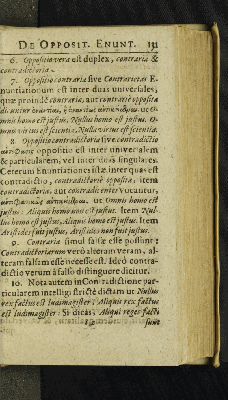 DE OPPOSIT. ENUNT. 131
6. Oppositio vera est duplex, contraria &
contradictoria.
7. Oppositio contraria sive Contrarietas E-
nuntiationum est inter duas universales,
quæ proinde contrariæ, aut contrariè oppositæ
dicuntur ut O-
mnis homo est justus, Nullus homo est justus. O-
mnis virtus est scientia, Nulla virtus est scientia.
8. Oppositio contradictoria sive contradictio
oppositio est inter universalem
& particularem, vel inter duas singulares.
Ceterum Enuntiationes istæ inter quas est
contradictio, contradictoriè oppositæ; item
contradictoriæ, aut contradicentes vocantur,
ut Omnis homo est
justus: Aliquis homo non est justus. Item Nul-
lus homo est justus, Aliquis homo est justus. Item
Aristides fuit justus, Aristides non fuit justus.
9. Contraria simul falsa esse possunt:
Contradictoriarum verò alteram veram, al-
teram falsam esse necesse est. Ideò contra-
dictio verum à falso distinguere dicitur.
10. Nota autem in Contradictione par-
ticularem intelligi strictè dictam ut Nullus
rex factus est ludimagister: Aliquis rex factus
est ludimagister: Si dicas, Aliqui reges facti
sunt